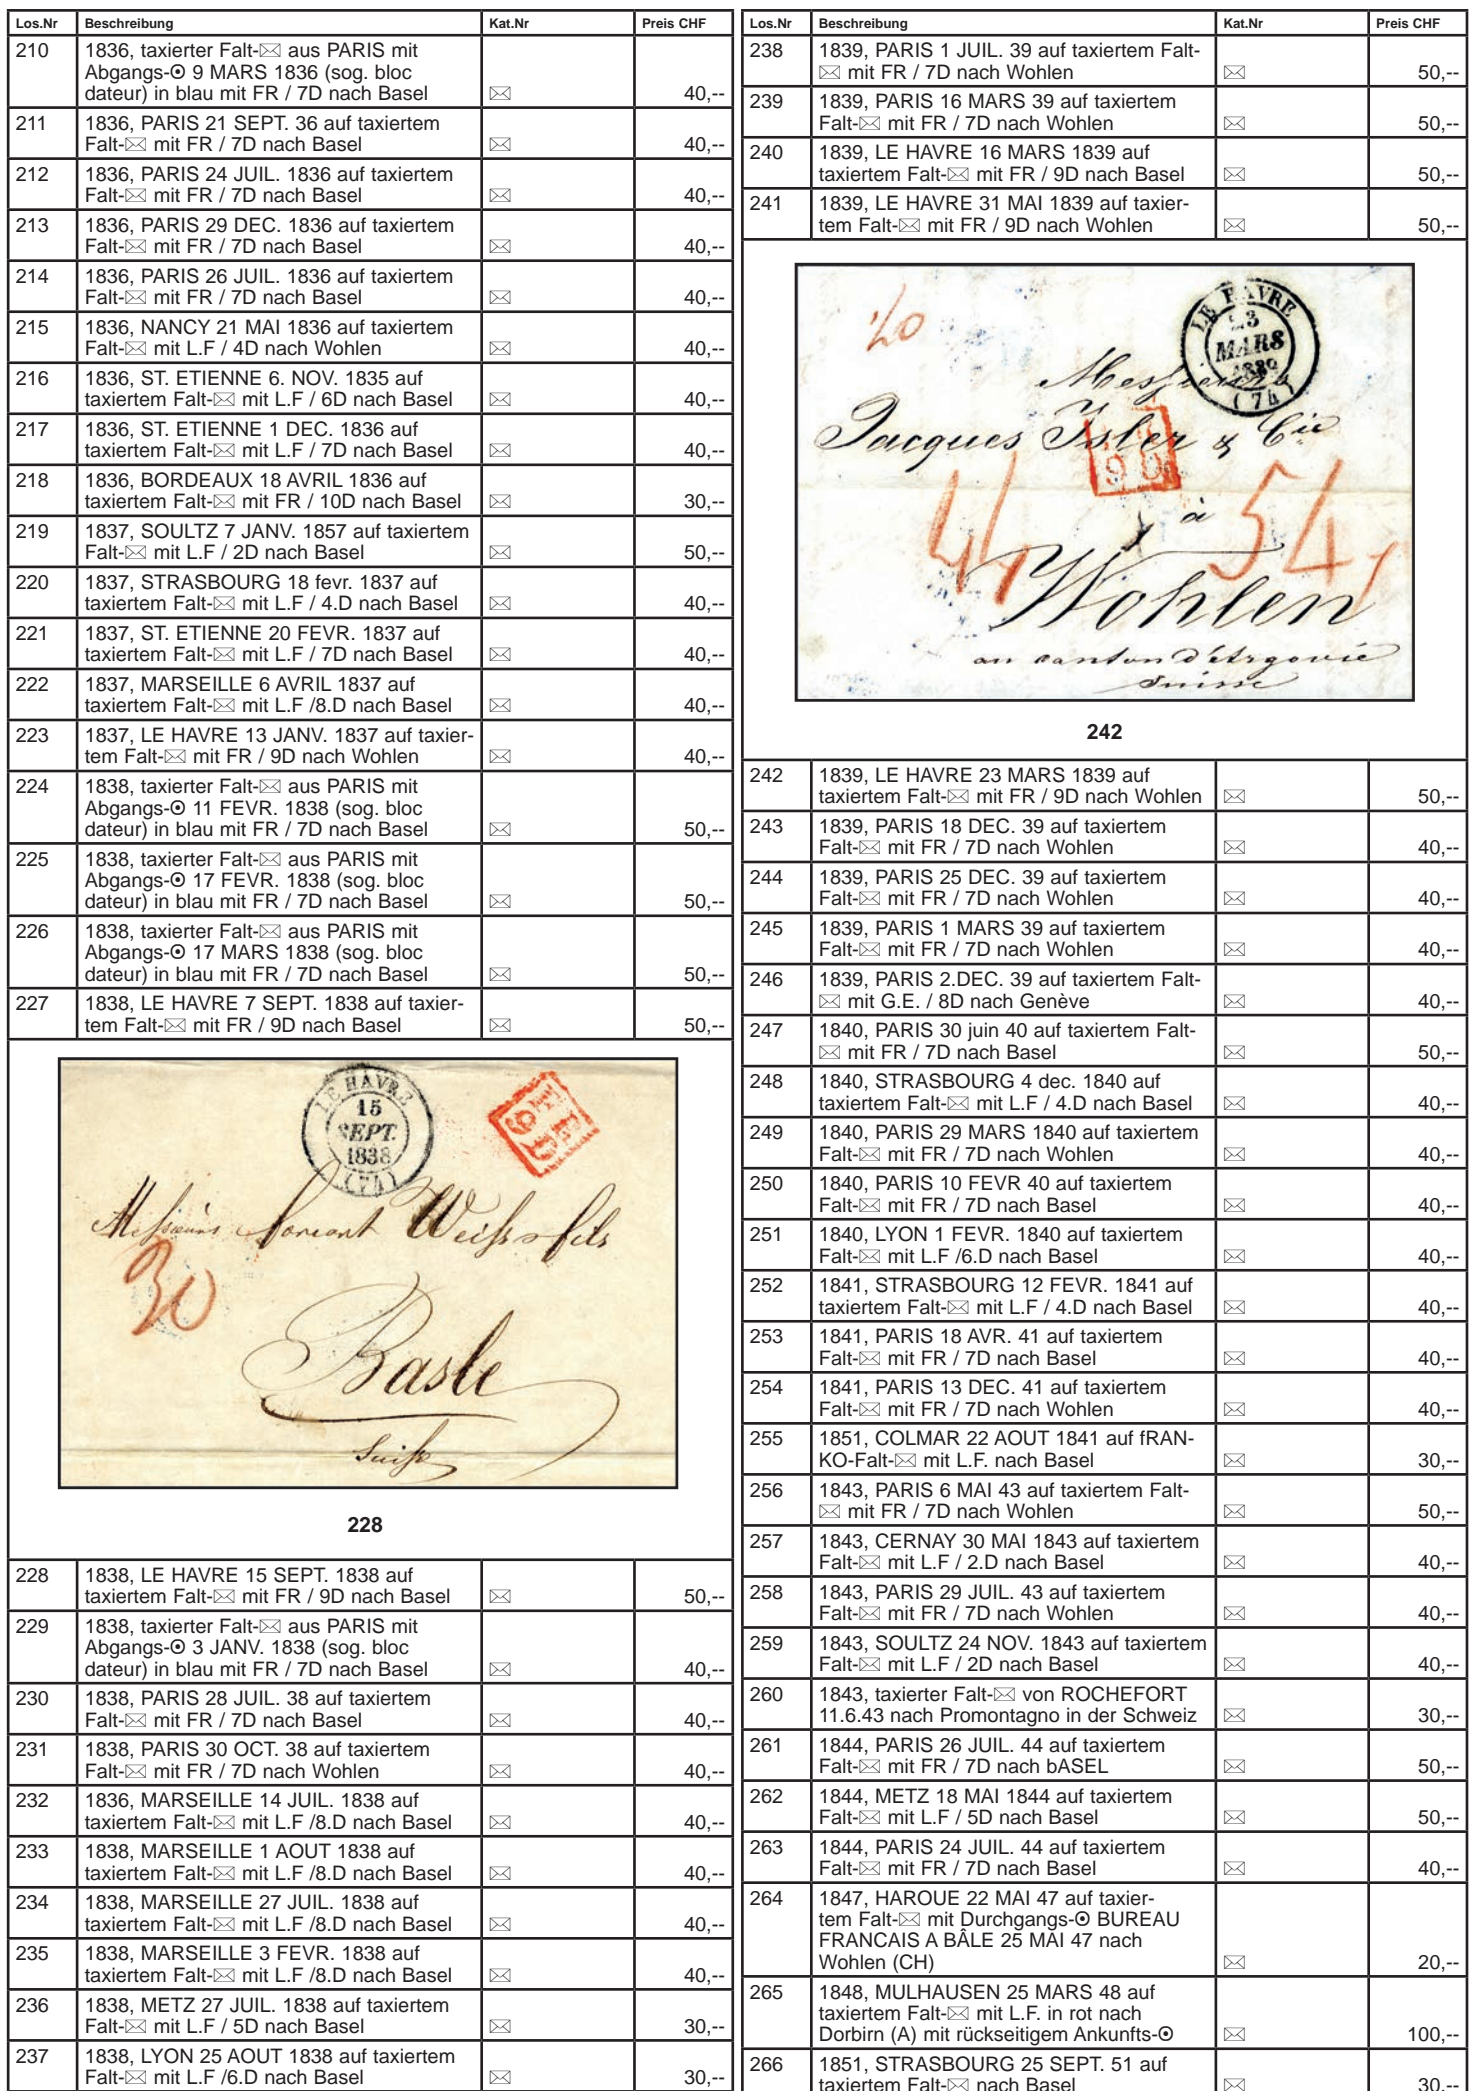 Los.Nr Beschreibung Kat.Nr Preis CHF
210 1836, taxierter Falt-✉ aus PARIS mit
Abgangs-⊙ 9 MARS 1836 (sog. bloc
dateur) in blau mit FR / 7D nach Basel ✉ 40,--
211 1836, PARIS 21 SEPT. 36 auf taxiertem
Falt-✉ mit FR / 7D nach Basel ✉ 40,--
212 1836, PARIS 24 JUIL. 1836 auf taxiertem
Falt-✉ mit FR / 7D nach Basel ✉ 40,--
213 1836, PARIS 29 DEC. 1836 auf taxiertem
Falt-✉ mit FR / 7D nach Basel ✉ 40,--
214 1836, PARIS 26 JUIL. 1836 auf taxiertem
Falt-✉ mit FR / 7D nach Basel ✉ 40,--
215 1836, NANCY 21 MAI 1836 auf taxiertem
Falt-✉ mit L.F / 4D nach Wohlen ✉ 40,--
216 1836, ST. ETIENNE 6. NOV. 1835 auf
taxiertem Falt-✉ mit L.F / 6D nach Basel ✉ 40,--
217 1836, ST. ETIENNE 1 DEC. 1836 auf
taxiertem Falt-✉ mit L.F / 7D nach Basel ✉ 40,--
218 1836, BORDEAUX 18 AVRIL 1836 auf
taxiertem Falt-✉ mit FR / 10D nach Basel ✉ 30,--
219 1837, SOULTZ 7 JANV. 1857 auf taxiertem
Falt-✉ mit L.F / 2D nach Basel ✉ 50,--
220 1837, STRASBOURG 18 fevr. 1837 auf
taxiertem Falt-✉ mit L.F / 4.D nach Basel ✉ 40,--
221 1837, ST. ETIENNE 20 FEVR. 1837 auf
taxiertem Falt-✉ mit L.F / 7D nach Basel ✉ 40,--
222 1837, MARSEILLE 6 AVRIL 1837 auf
taxiertem Falt-✉ mit L.F /8.D nach Basel ✉ 40,--
223 1837, LE HAVRE 13 JANV. 1837 auf taxier-
tem Falt-✉ mit FR / 9D nach Wohlen ✉ 40,--
224 1838, taxierter Falt-✉ aus PARIS mit
Abgangs-⊙ 11 FEVR. 1838 (sog. bloc
dateur) in blau mit FR / 7D nach Basel ✉ 50,--
225 1838, taxierter Falt-✉ aus PARIS mit
Abgangs-⊙ 17 FEVR. 1838 (sog. bloc
dateur) in blau mit FR / 7D nach Basel ✉ 50,--
226 1838, taxierter Falt-✉ aus PARIS mit
Abgangs-⊙ 17 MARS 1838 (sog. bloc
dateur) in blau mit FR / 7D nach Basel ✉ 50,--
227 1838, LE HAVRE 7 SEPT. 1838 auf taxier-
tem Falt-✉ mit FR / 9D nach Basel ✉ 50,--
LE HAVRE
15
SEPT.
1838
(74)
9D
Weiss
fils
30
Basle
Suisse
228
228 1838, LE HAVRE 15 SEPT. 1838 auf
taxiertem Falt-✉ mit FR / 9D nach Basel ✉ 50,--
229 1838, taxierter Falt-✉ aus PARIS mit
Abgangs-⊙ 3 JANV. 1838 (sog. bloc
dateur) in blau mit FR / 7D nach Basel ✉ 40,--
230 1838, PARIS 28 JUIL. 38 auf taxiertem
Falt-✉ mit FR / 7D nach Basel ✉ 40,--
231 1838, PARIS 30 OCT. 38 auf taxiertem
Falt-✉ mit FR / 7D nach Wohlen ✉ 40,--
232 1836, MARSEILLE 14 JUIL. 1838 auf
taxiertem Falt-✉ mit L.F /8.D nach Basel ✉ 40,--
233 1838, MARSEILLE 1 AOUT 1838 auf
taxiertem Falt-✉ mit L.F /8.D nach Basel ✉ 40,--
234 1838, MARSEILLE 27 JUIL. 1838 auf
taxiertem Falt-✉ mit L.F /8.D nach Basel ✉ 40,--
235 1838, MARSEILLE 3 FEVR. 1838 auf
taxiertem Falt-✉ mit L.F /8.D nach Basel ✉ 40,--
236 1838, METZ 27 JUIL. 1838 auf taxiertem
Falt-✉ mit L.F / 5D nach Basel ✉ 30,--
237 1838, LYON 25 AOUT 1838 auf taxiertem
Falt-✉ mit L.F /6.D nach Basel ✉ 30,--
Los.Nr Beschreibung Kat.Nr Preis CHF
238 1839, PARIS 1 JUIL. 39 auf taxiertem Falt-
✉ mit FR / 7D nach Wohlen ✉ 50,--
239 1839, PARIS 16 MARS 39 auf taxiertem
Falt-✉ mit FR / 7D nach Wohlen ✉ 50,--
240 1839, LE HAVRE 16 MARS 1839 auf
taxiertem Falt-✉ mit FR / 9D nach Basel ✉ 50,--
241 1839, LE HAVRE 31 MAI 1839 auf taxier-
tem Falt-✉ mit FR / 9D nach Wohlen ✉ 50,--
LE HAVRE
23
MARS
1839
(74)
Messieurs
Jacques Isler & Cie
à
54
Wohlen
au canton d'Argovie
Suisse
242
242 1839, LE HAVRE 23 MARS 1839 auf
taxiertem Falt-✉ mit FR / 9D nach Wohlen ✉ 50,--
243 1839, PARIS 18 DEC. 39 auf taxiertem
Falt-✉ mit FR / 7D nach Wohlen ✉ 40,--
244 1839, PARIS 25 DEC. 39 auf taxiertem
Falt-✉ mit FR / 7D nach Wohlen ✉ 40,--
245 1839, PARIS 1 MARS 39 auf taxiertem
Falt-✉ mit FR / 7D nach Wohlen ✉ 40,--
246 1839, PARIS 2.DEC. 39 auf taxiertem Falt-
✉ mit G.E. / 8D nach Genève ✉ 40,--
247 1840, PARIS 30 juin 40 auf taxiertem Falt-
✉ mit FR / 7D nach Basel ✉ 50,--
248 1840, STRASBOURG 4 dec. 1840 auf
taxiertem Falt-✉ mit L.F / 4.D nach Basel ✉ 40,--
249 1840, PARIS 29 MARS 1840 auf taxiertem
Falt-✉ mit FR / 7D nach Wohlen ✉ 40,--
250 1840, PARIS 10 FEVR 40 auf taxiertem
Falt-✉ mit FR / 7D nach Basel ✉ 40,--
251 1840, LYON 1 FEVR. 1840 auf taxiertem
Falt-✉ mit L.F /6.D nach Basel ✉ 40,--
252 1841, STRASBOURG 12 FEVR. 1841 auf
taxiertem Falt-✉ mit L.F / 4.D nach Basel ✉ 40,--
253 1841, PARIS 18 AVR. 41 auf taxiertem
Falt-✉ mit FR / 7D nach Basel ✉ 40,--
254 1841, PARIS 13 DEC. 41 auf taxiertem
Falt-✉ mit FR / 7D nach Wohlen ✉ 40,--
255 1851, COLMAR 22 AOUT 1841 auf fRAN-
KO-Falt-✉ mit L.F. nach Basel ✉ 30,--
256 1843, PARIS 6 MAI 43 auf taxiertem Falt-
✉ mit FR / 7D nach Wohlen ✉ 50,--
257 1843, CERNAY 30 MAI 1843 auf taxiertem
Falt-✉ mit L.F / 2.D nach Basel ✉ 40,--
258 1843, PARIS 29 JUIL. 43 auf taxiertem
Falt-✉ mit FR / 7D nach Wohlen ✉ 40,--
259 1843, SOULTZ 24 NOV. 1843 auf taxiertem
Falt-✉ mit L.F / 2D nach Basel ✉ 40,--
260 1843, taxierter Falt-✉ von ROCHEFORT
11.6.43 nach Promontagno in der Schweiz ✉ 30,--
261 1844, PARIS 26 JUIL. 44 auf taxiertem
Falt-✉ mit FR / 7D nach bASEL ✉ 50,--
262 1844, METZ 18 MAI 1844 auf taxiertem
Falt-✉ mit L.F / 5D nach Basel ✉ 50,--
263 1844, PARIS 24 JUIL. 44 auf taxiertem
Falt-✉ mit FR / 7D nach Basel ✉ 40,--
264 1847, HAROUE 22 MAI 47 auf taxier-
tem Falt-✉ mit Durchgangs-⊙ BUREAU
FRANCAIS A BÂLE 25 MAI 47 nach
Wohlen (CH) ✉ 20,--
265 1848, MULHAUSEN 25 MARS 48 auf
taxiertem Falt-✉ mit L.F. in rot nach
Dorbirn (A) mit rückseitigem Ankunfts-⊙ ✉ 100,--
266 1851, STRASBOURG 25 SEPT. 51 auf
taxiertem Falt-✉ nach Basel ✉ 30,--